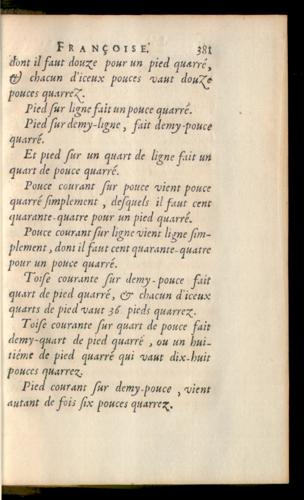 FRANÇOISE. 381
dont il faut douze pour un pied quarré,
& chacun d'iceux pouces vaut douze
pouces quarrez.
Pied ſur ligne fait un pouce quarré.
Pied ſur demy-ligne, fait demy-pouce
quarré.
Et pied ſur un quart de ligne fait un
quart de pouce quarré.
Pouce courant ſur pouce vient pouce
quarré ſimplement, deſquels il faut cent
quarante-quatre pour un pied quarré.
Pouce courant ſur ligne vient ligne ſim-
plement, dont il faut cent quarante-quatre
pour un pouce quarré.
Toiſe courante ſur demy-pouce fait
quart de pied quarré, & chacun d'iceux
quarts de pied vaut 36. pieds quarrez.
Toiſe courante ſur quart de pouce fait
demy-quart de pied quarré, ou un hui-
tiéme de pied quarré qui vaut dix-huit
pouces quarrez.
Pied courant ſur demy-pouce, vient
autant de fois ſix pouces quarrez.